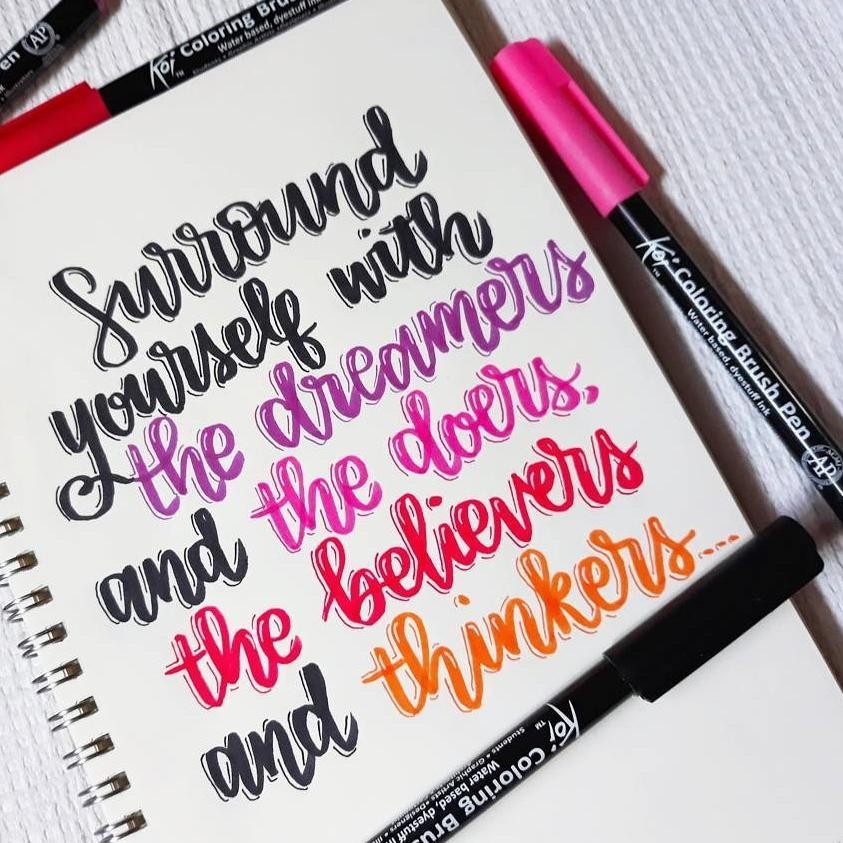 en
AP
Koi Coloring Brush
Water based, dyestuff ink
Surround
yourself with
the dreamers
the doers,
and the believers
and thinkers...
Koi Coloring Brush Pen
Water based, dyestuff ink
AP
Koi Coloring Bru
Water based, dyestuff in
Students • Graphic Artists • Designers